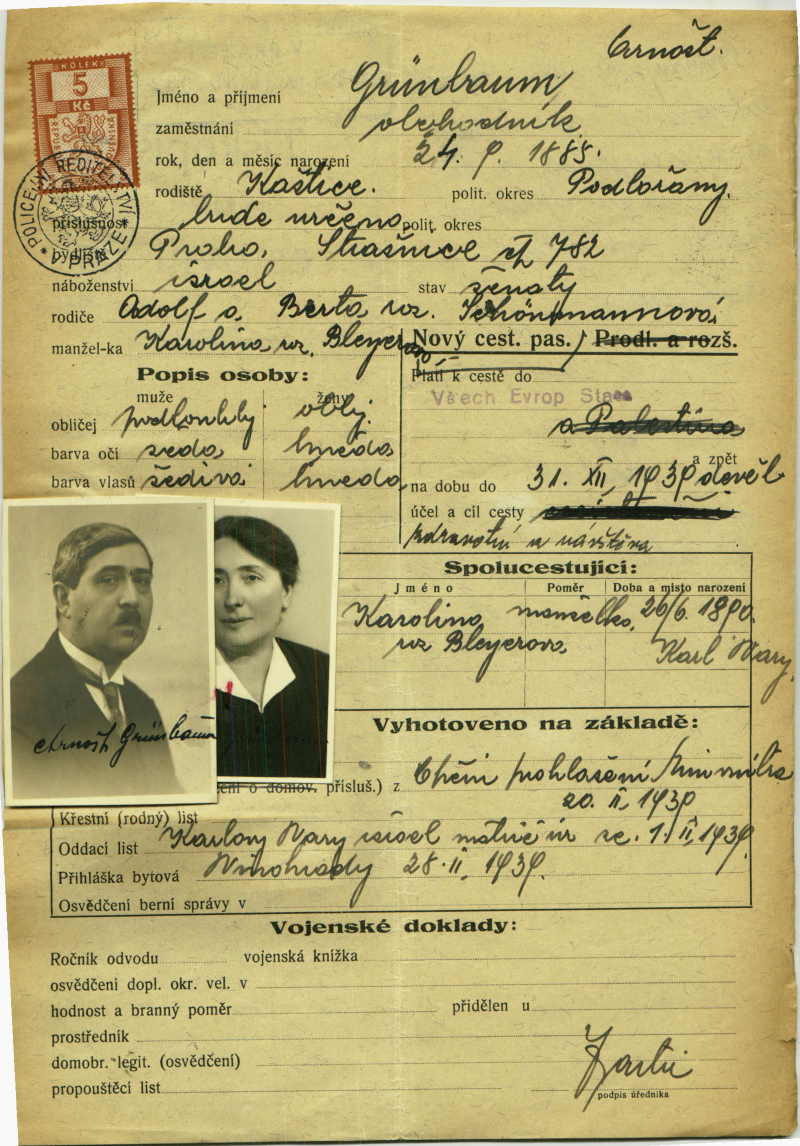 Arnošt.
KOLEK
5
Kč
Jméno a příjmení Grünbaum
zaměstnání obchodník
rok, den a měsíc narození 24. 9. 1885.
rodiště Kaštice. polit. okres Podbořany.
POLICEJNÍ ŘEDITELSTVÍ V PRAZE
příslušnost bude určeno polit. okres
bydliště Praha, Strašnice čp 782
náboženství israel stav ženatý
rodiče Adolf a Berta roz. Schönmannová
manžel-ka Karolina roz. Bleyerova
Nový cest. pas. / Prodl. a rozš.
Popis osoby:
Platí k cestě do
muže ženy
Všech Evrop Států
obličej podlouhlý oblý
a Palestina
barva očí šedá hnědá
a zpět
barva vlasů šedivá hnědá
na dobu do 31. XII. 1939
účel a cíl cesty
zdravotní a návštěva
Spolucestující:
Jméno Poměr Doba a místo narození
Karolina manželka 26/6. 1890.
roz Bleyerova Karl Vary.
Arnošt Grünbaum
Vyhotoveno na základě:
čení o domov. přísluš.) z Čestné prohlášení
20. II. 1939
Křestní (rodný) list
Oddací list Karlovy Vary israel 1. II. 1939.
Přihláška bytová Vinohrady 28. II. 1939.
Osvědčení berní správy v
Vojenské doklady:
Ročník odvodu vojenská knížka
osvědčení dopl. okr. vel. v
hodnost a branný poměr přidělen u
prostředník
domobr. legit. (osvědčení)
propouštěcí list
podpis úředníka